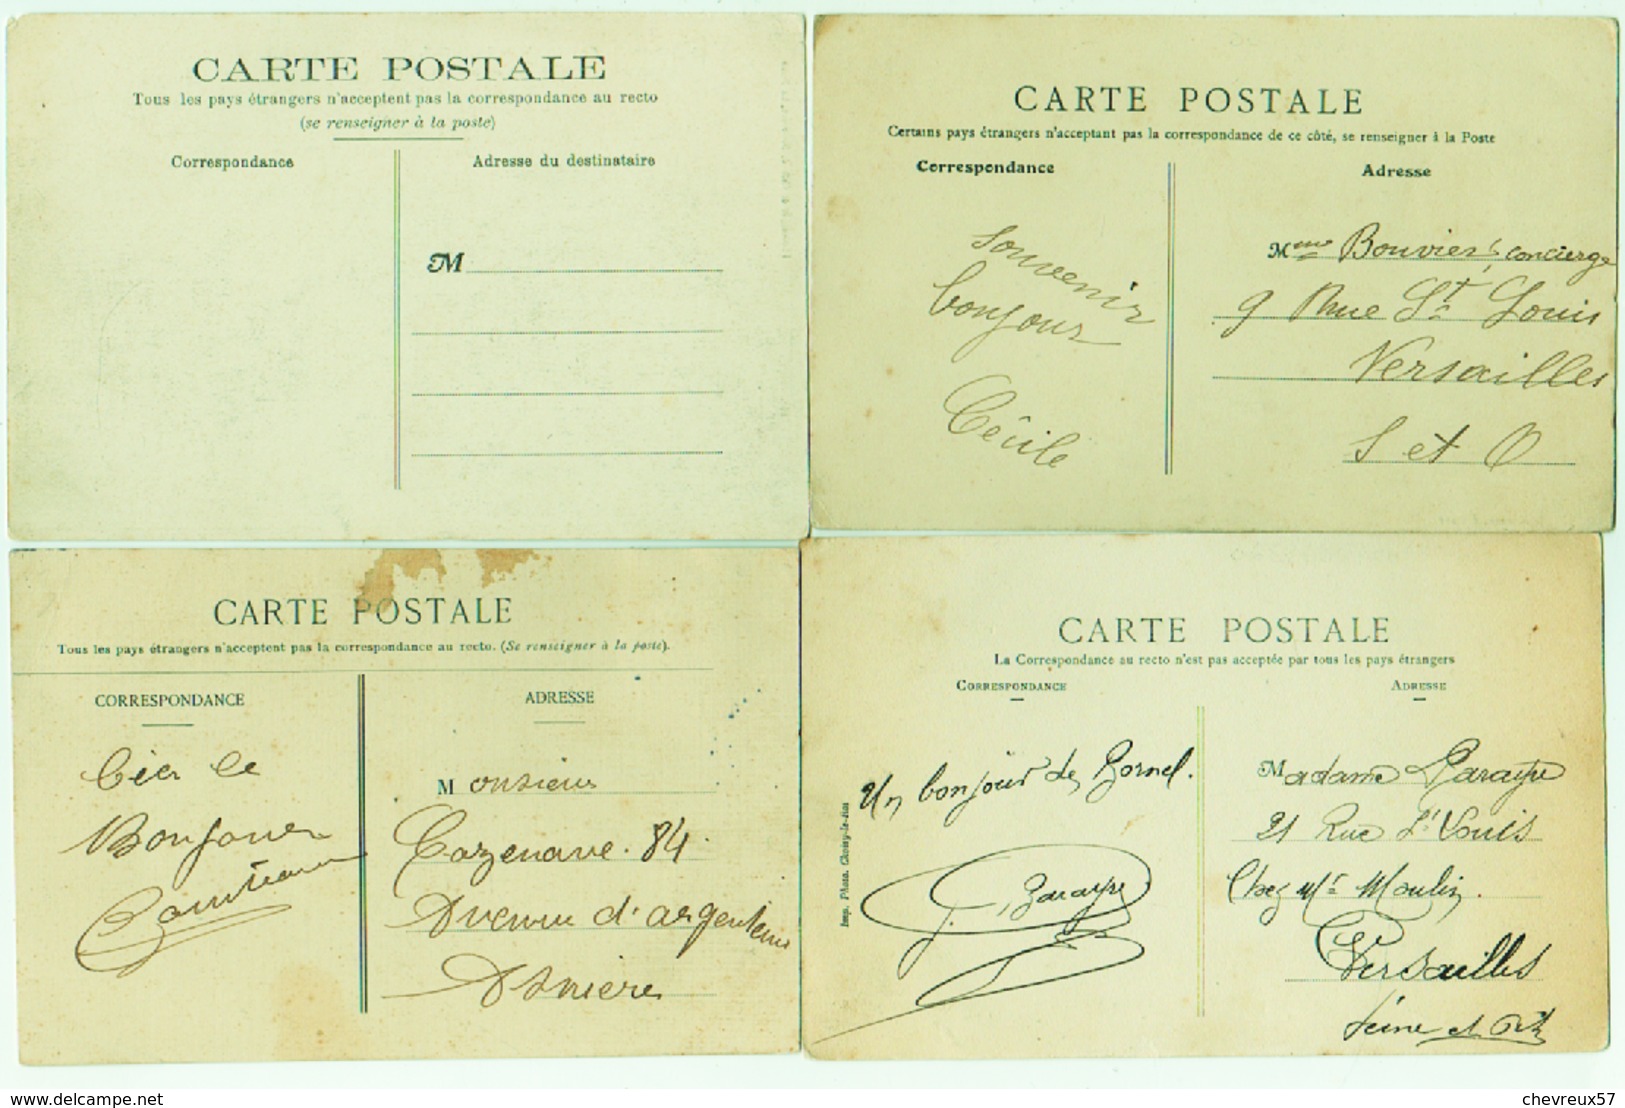 CARTE POSTALE
Tous les pays étrangers n'acceptent pas la correspondance au recto
(se renseigner à la poste)
Correspondance
Adresse du destinataire
M
CARTE POSTALE
Certains pays étrangers n'acceptant pas la correspondance de ce côté, se renseigner à la Poste
Correspondance
Adresse
Souvenir
bonjour
Cécile
Mme Bouvier, concierge
9 Rue St Louis
Versailles
S et O
CARTE POSTALE
Tous les pays étrangers n'acceptent pas la correspondance au recto. (Se renseigner à la poste).
CORRESPONDANCE
ADRESSE
le
Bonjour
Monsieur
Cazenave. 84.
Avenue d'argenteuil
Asnières
CARTE POSTALE
La Correspondance au recto n'est pas acceptée par tous les pays étrangers
CORRESPONDANCE
ADRESSE
Un bonjour de Bornel.
Imp. Photo. Choisy-le-Roi
Madame
21 Rue St Louis
Chez Mr Moulin.
Versailles
Seine et Oise
delcampe.net
chevreux57